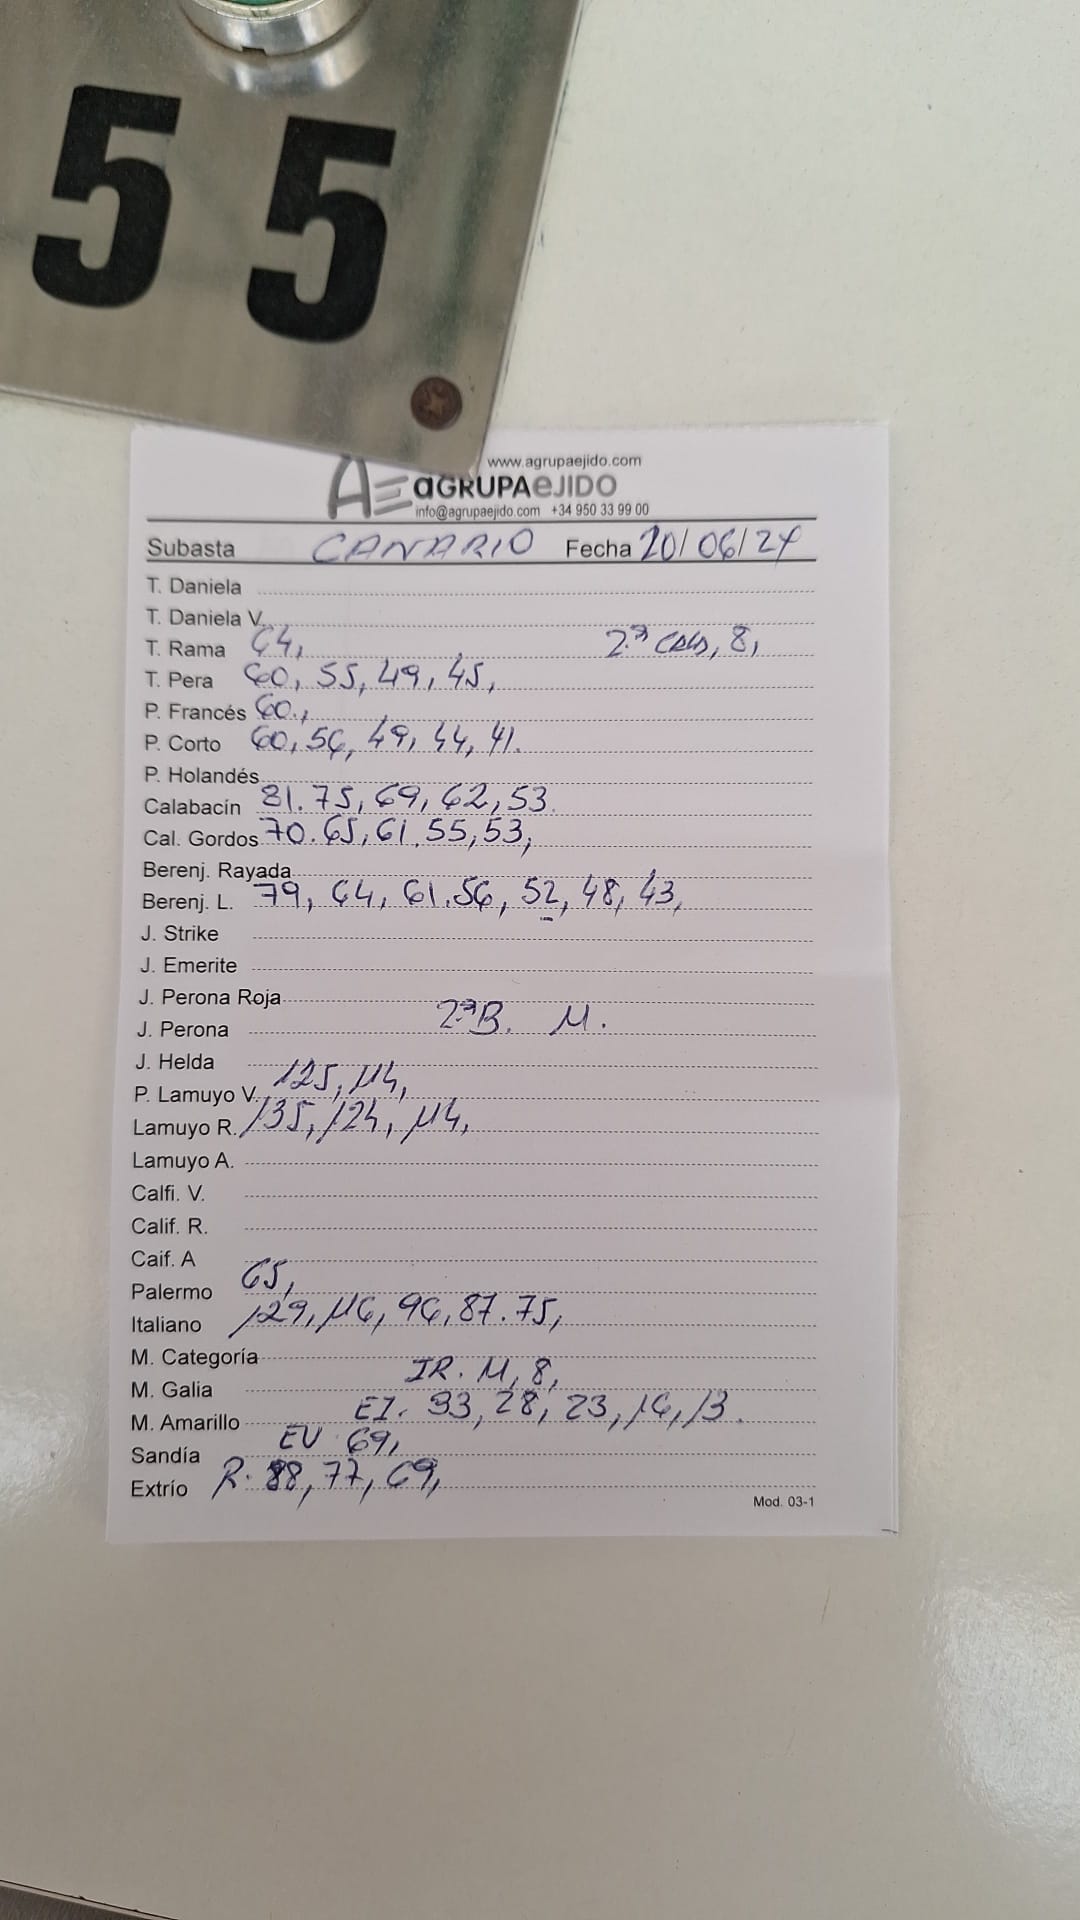 55
www.agrupaejido.com
AE aGRUPAeJIDO
info@agrupaejido.com +34 950 33 99 00
Subasta CANARIO Fecha 20/06/24
T. Daniela
T. Daniela V.
T. Rama 64, 2ª CAL, 8,
T. Pera 60, 55, 49, 45,
P. Francés 60.,
P. Corto 60, 56, 49, 44, 41.
P. Holandés
Calabacín 81. 75, 69, 62, 53.
Cal. Gordos 70. 65, 61, 55, 53,
Berenj. Rayada
Berenj. L. 79, 64, 61. 56, 52, 48, 43,
J. Strike
J. Emerite
J. Perona Roja
J. Perona 2ªB. 11.
J. Helda
P. Lamuyo V. 125, 114,
Lamuyo R. 135, 124, 114,
Lamuyo A.
Calfi. V.
Calif. R.
Caif. A
Palermo 65,
Italiano 129, 116, 96, 87. 75,
M. Categoría
M. Galia IR. 11, 8,
M. Amarillo EI. 33, 28, 23, 16, 13.
Sandía EV 69,
Extrío R. 88, 77, 69,
Mod. 03-1